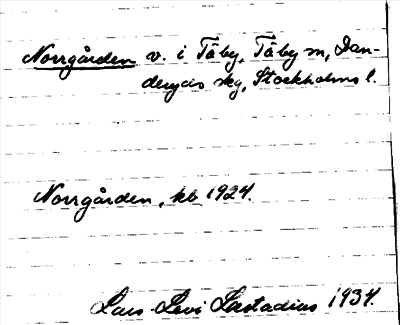 Norrgården v. i Täby, Täby sn, Dan-
deryds skg, Stockholms l.
Norrgården, kb 1924.
Lars Levi Læstadius 1934.